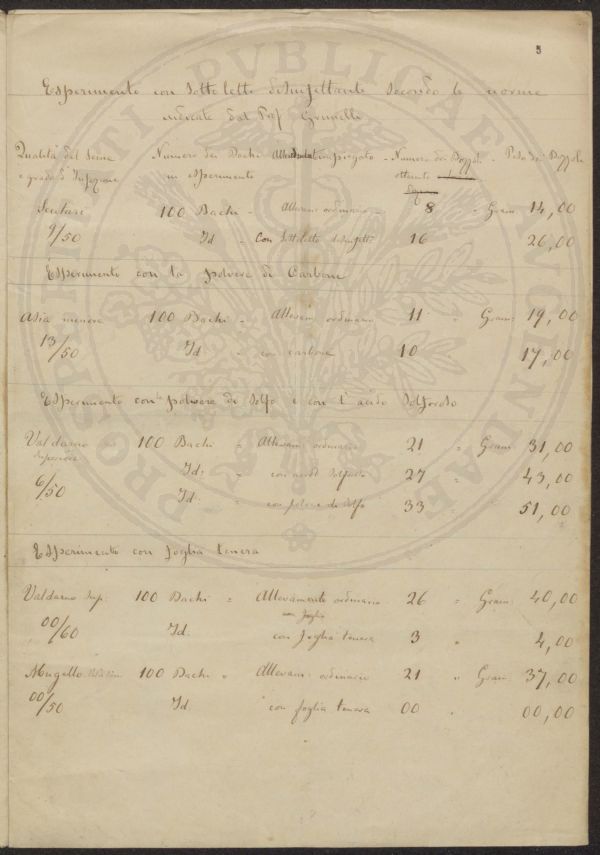 5
Esperimento con Sottoletto disinfettante secondo le norme
indicate dal Prof Grunelli
Qualità del Seme Numero dei Bachi impiegato - Numero dei Bozzoli - Peso dei Bozzoli
e grado d' Infezione in esperimento ottenuto
Scutari 100 Bachi - Allevam: ordinario - 8 " Gram: 14,00
9/50 Id - Con Sottoletto disinfett: 16 26,00
Esperimento con la polvere di Carbone
Asia minore 100 Bachi - Allevam: ordinario 11 " Gram: 19,00
13/50 Id - con carbone 10 " 17,00
Esperimento con polvere di Solfo e con l' acido Solforoso
Valdarno 100 Bachi = Allevam: ordinario 21 " Gram: 31,00
Superiore
Id: " con acido Solforoso 27 " 43,00
6/50 Id: " con polvere di Solfo 33 " 51,00
Esperimento con foglia tenera
Valdarno Sup. 100 Bachi = Allevamento ordinario 26 " Gram: 40,00
con foglia
00/60 Id. con foglia tenera 3 " 4,00
Mugello 100 Bachi " Allevam: ordinario 21 " Gram: 37,00
00/50 Id con foglia tenera 00 " 00,00
PROSPERITATI PVBLICAE AVGENDAE